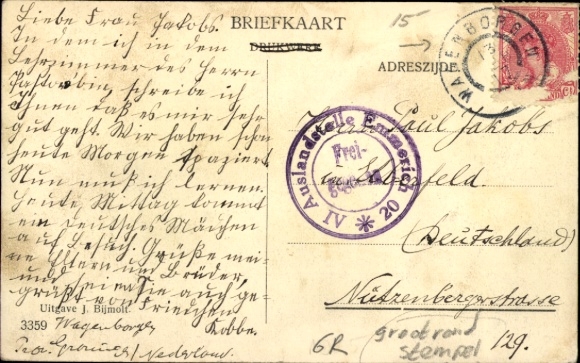 Liebe Frau Jakobs.
In dem ich in dem
Lesezimmer des Herrn
schreibe ich
Ihnen daß es mir sehr
gut geht. Wir haben schon
heute Morgen spaziert
Nun muß ich lernen.
Heute Mittag kommt
ein Deutsches Mädchen
auf Besuch. Grüße mei-
ne Eltern und Brüder,
und seien Sie auch ge-
grüßt von Friedchen
Kobbe.
Wagenborgen
Prov. Groningen / Nederland.
Uitgave J. Bijmolt.
3359
BRIEFKAART
DRUKWERK
ADRESZIJDE.
15
WAGENBORGEN
Auslandstelle Emmerich
Frei-
gegeben
IV * 20
Frau Paul Jakobs
in Elberfeld
(Deutschland)
Nützenbergerstrasse
129.
6R
grootrond
stempel